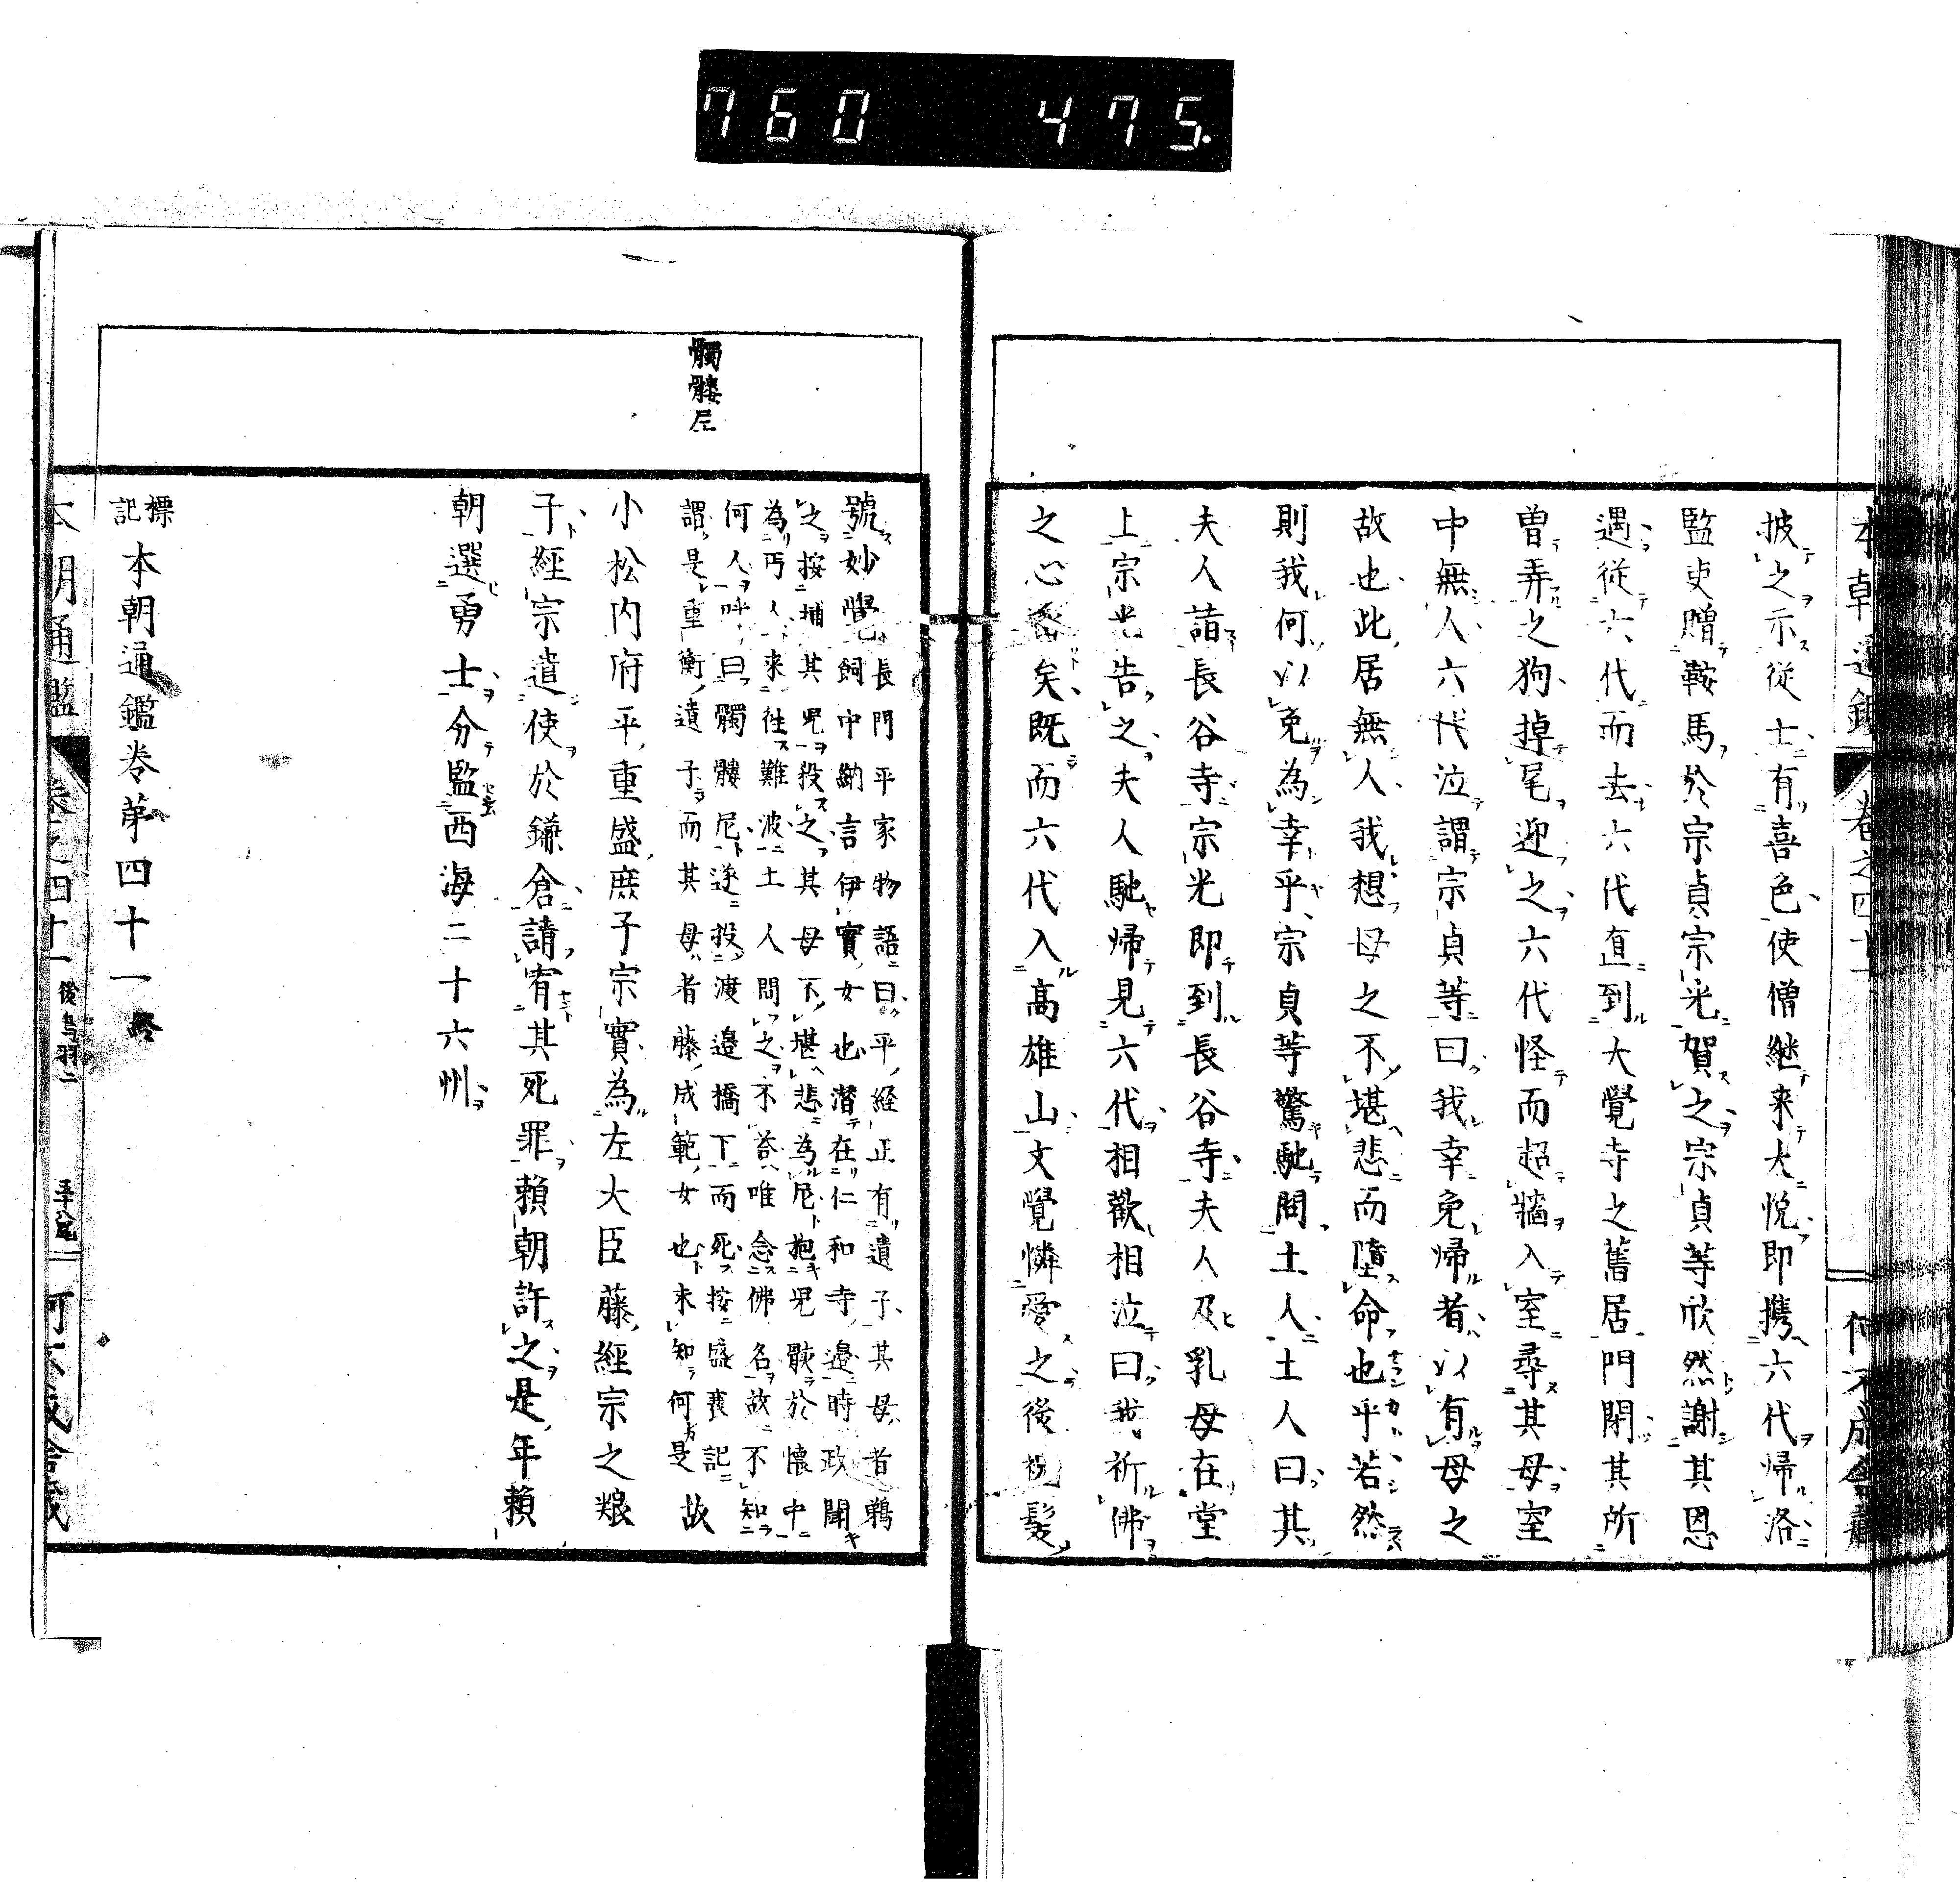 760 475.
披之示従士有喜色使僧継来大悦即携六代帰洛
監吏贈鞍馬於宗貞宗光賀之宗貞等欣然謝其恩
遇従六代而去六代直到大覺寺之舊居門閉其所
曽弄之狗掉尾迎之六代怪而超牆入室尋其母室
中無人六代泣謂宗貞等曰我幸免帰者以有母之
故也此居無人我想母之不堪悲而墮命也乎若然
則我何以免為幸乎宗貞等驚馳問土人土人曰其
夫人詣長谷寺宗光即到長谷寺夫人及乳母在堂
上宗光告之夫人馳帰見六代相歡相泣曰我祈佛
之心矣既而六代入髙雄山文覺憐愛之後祝髪
髑髏尼
號妙覺
長門平家物語曰平経正有遺子其母者鵜
飼中納言伊實女也潜在仁和寺邉時政聞
之按捕其児殺之其母不堪悲為尼抱児骸於懐中
為丐人来往難波土人問之不荅唯念佛名故不知
何人呼曰髑髏尼遂投渡邉橋下而死按盛衰記
謂是重衡遺子而其母者藤成範女也未知何是故
小松内府平重盛庶子宗實為左大臣藤經宗之粮
子經宗遣使於鎌倉請宥其死罪頼朝許之是年頼
朝選勇士分監西海二十六州
標記 本朝通鑑巻苐四十一終